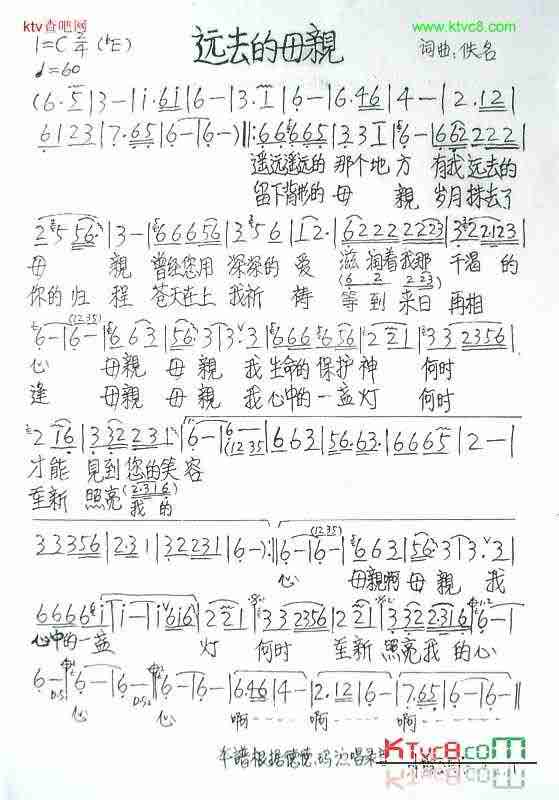 ktv查吧网
www.ktvc8.com
1=C 2/4 (bE)
♩=60
远去的母親
词曲:佚名
(6·5|3-|i·6i|6-|3·1|6-|6·46|4-|2·12|
6123|7·65|6-|6-)‖:66665|331|6-|662222|
遥远遥远的 那个地方 有我远去的
留下背影的 母 親 岁月抹去了
2556·|3-|666656|3·56|12·|62222223|322·123|
母 親 曾经您用 深深的 爱 滋润着我那 干渴 的
你的归 程 苍天在上 我祈 祷 等到 来日 再相
(6 2 223)
6-|6-|663|56·3|3·3|666656|221|332356|
(1235)
心 母親 母親 我 生命的保护神 何时
逢 母親 母親 我 心中的一盏灯 何时
216|332231|6-|6-|663|56·63·|66665|2-|
(1235
才能 見到您的笑容
重新 照亮(2·316)
我的
33356|2·31|32231|6-):‖6-|6-|663|56·3|3·3|
(1235)
心 母親啊 母親 我
6666i|i-|i6i6|221|332356|221|3322·316|6-|
心中的一盏 灯 何时 重新 照亮我 的心
6-|6-|6-|6-|6-|6·46|4-|2·12|6-|7·65|6-|6-‖
D.S. D.S.
心 心 啊---- 啊---- 啊----
KTvc8.com